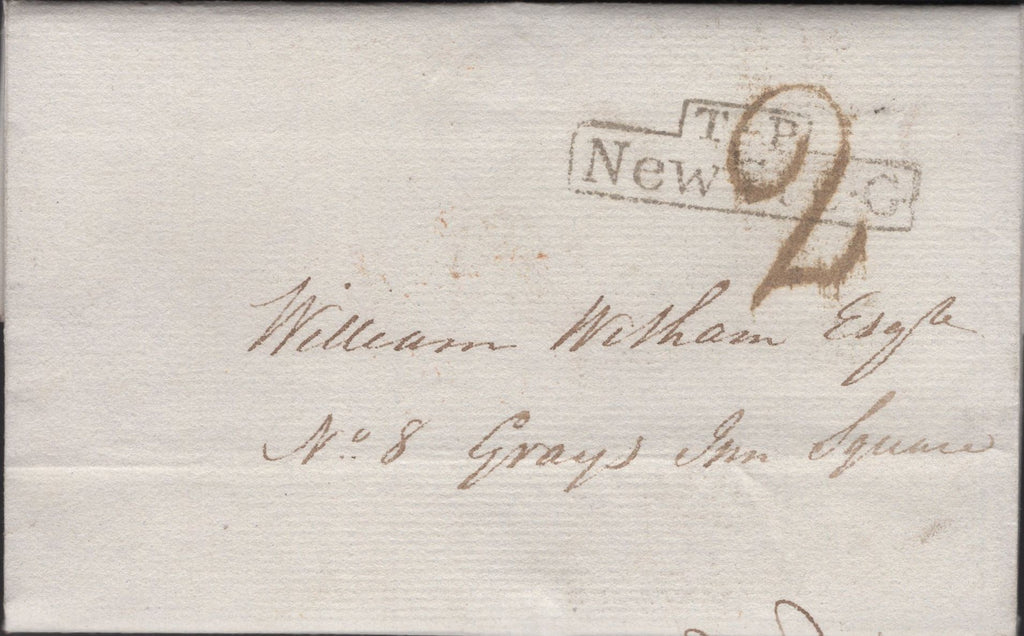 T.P
2
New
G
William Witham Esqre
No. 8 Grays Inn Square